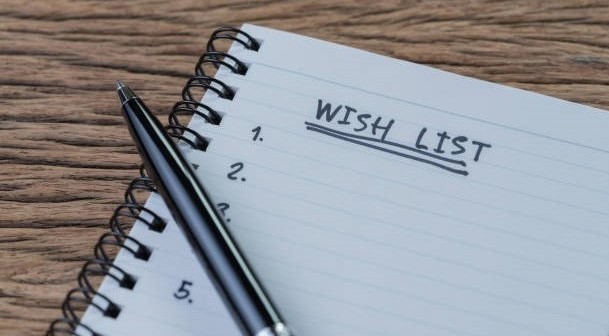 WISH LIST
1.
2.
5.